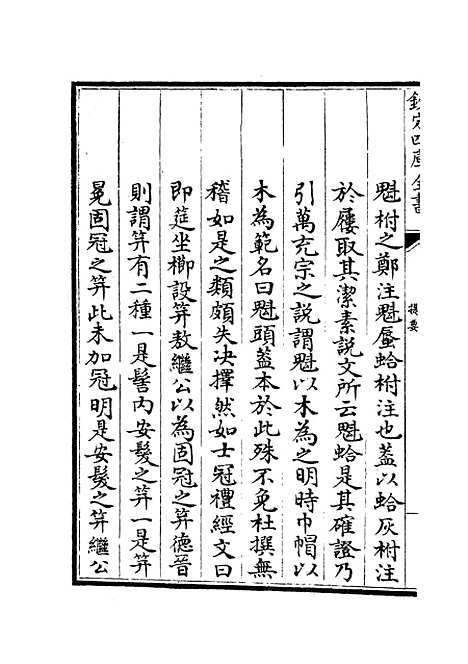 欽定四庫全書
提要
魁柎之鄭注魁蜃蛤柎注也葢以蛤灰柎注
於屨取其潔素說文所云魁蛤是其確證乃
引萬充宗之說謂魁以木為之明時巾帽以
木為範名曰魁頭葢本於此殊不免杜撰無
稽如是之類頗失决擇然如士冠禮經文曰
即筵坐櫛設笄敖繼公以為固冠之笄德晉
則謂笄有二種一是髻內安髮之笄一是笄
冕固冠之笄此未加冠明是安髮之笄繼公